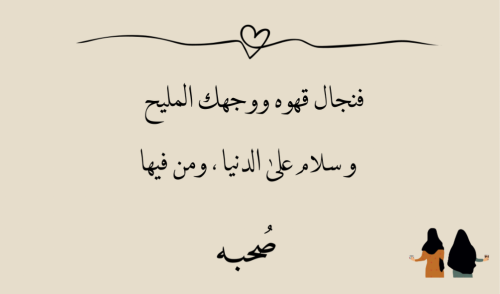 فنجال قهوه ووجهك المليح
وسلام علىٰ الدنيا ، ومن فيها
صُحبه